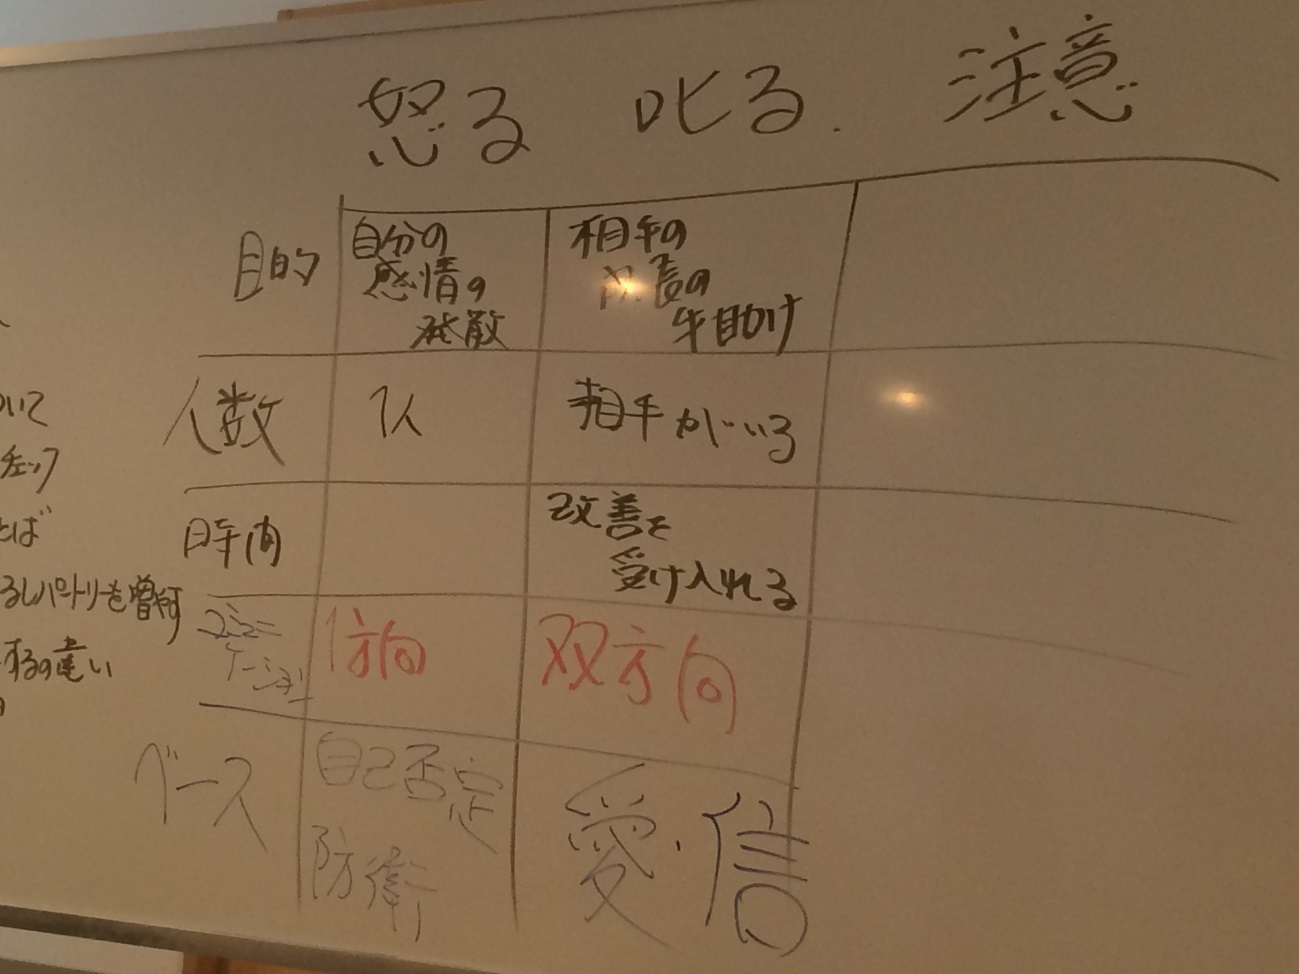 怒る 叱る. 注意
目的 自分の 相手の
感情の 成長の
発散 手助け
人数 1人 相手がいる
時内 改善を
受け入れる
コミュニケーション 1方向 双方向
ベース 自己否定 愛・信
防衛
ついて
チェック
とば
るレパートリーを増やす
するの違い